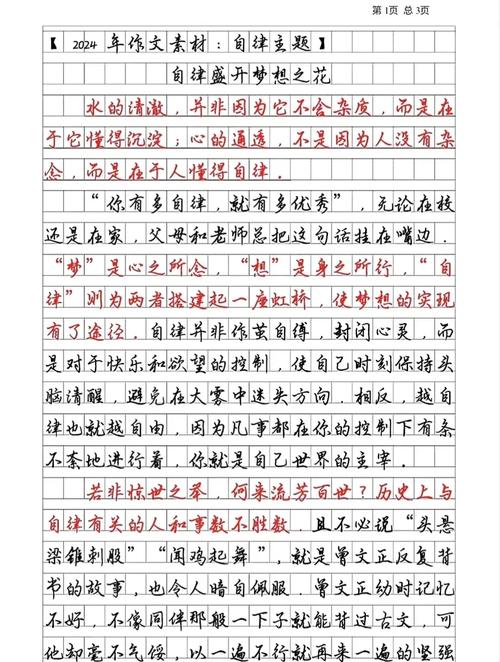 第1页 总3页
【 2024 年作文素材：自律主题】
自律盛开梦想之花
水的清澈，并非因为它不含杂质，而是在
于它懂得沉淀；心的通透，不是因为人没有杂
念，而是在于人懂得自律．
“你有多自律，就有多优秀”，无论在校
还是在家，父母和老师总把这句话挂在嘴边．
“梦”是心之所念，“想”是身之所行，“自
律”则为两者搭建起一座虹桥，使梦想的实现
有了途径．自律并非作茧自缚，封闭心灵，而
是对于快乐和欲望的控制，使自己时刻保持头
脑清醒，避免在大雾中迷失方向．相反，越自
律也就越自由，因为凡事都在你的控制下有条
不紊地进行着，你就是自己世界的主宰．
若非惊世之举，何来流芳百世？历史上与
自律有关的人和事数不胜数．且不必说“头悬
梁锥刺股”“闻鸡起舞”，就是曾文正反复背
书的故事，也令人暗自佩服．曾文正幼时记忆
不好，不像同伴那般一下子就能背过古文，可
他却毫不气馁，以一遍不行就再来一遍的坚强